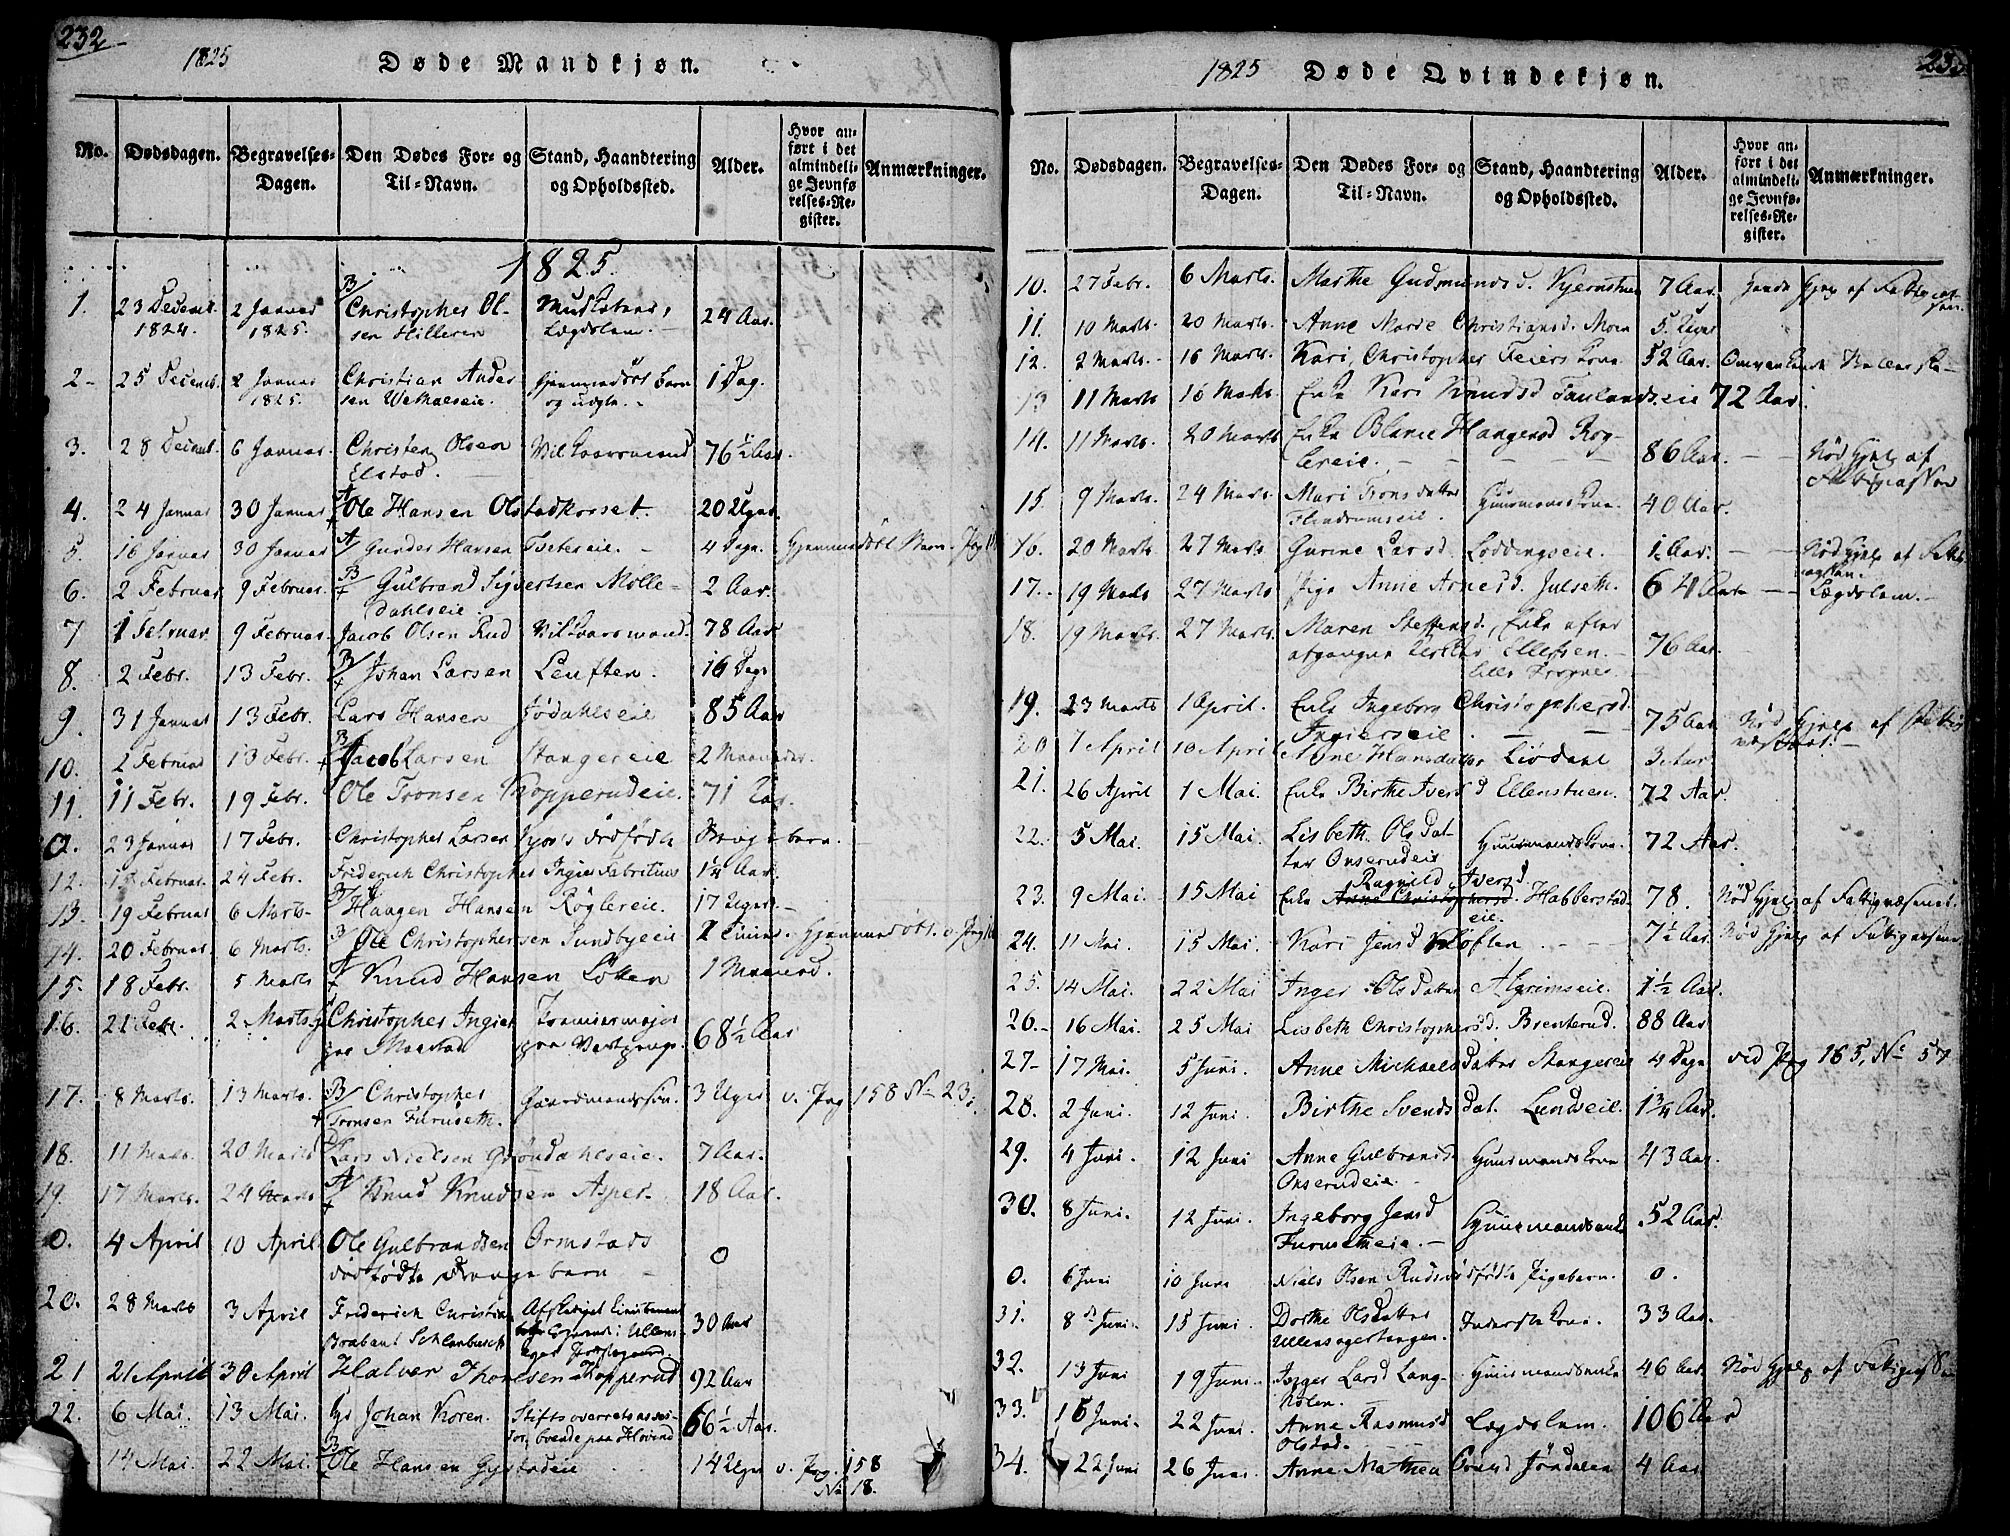 232
1825 Døde Mandkjøn.
No. Dødsdagen. Begravelses-Dagen. Den Dødes For- og Til-Navn. Stand, Haandtering og Opholdssted. Alder. Hvor anført i det almindelige Jevnførelses-Register. Anmærkninger.
1825.
1. 23 Decemb. 1824. 2 Januar 1825. Christopher Olsen Hilleren Lægdslem. 24 Aar.
2 25 Decemb. 2 Januar 1825. Christian Andersen Hjemmedöbt Barn 1 Dag.
3. 28 Decemb. 6 Januar Christen Olsen Elstad. Vilkaarsmand 76 1/2 Aar
4. 24 Januar 30 Januar Ole Hansen Olstadkorset. 20 Uger
5. 16 Januar 30 Januar Gunder Hansen Tveterseie. 4 Dage. Hjemmedöbt Barn
6. 2 Februar 9 Februar. Gulbrand Sigvertsen Mölledahlseie. 2 Aar.
7 1 Februar. 9 Februar. Jacob Olsen Rud Vilkaarsmand. 78 Aar
8. 2 Febr. 13 Febr. Johan Larsen Leuften. 16 Dage
9. 31 Januar 13 Febr. Lars Hansen Jödahlseie 85 Aar
10. 2 Februar 13 Febr. Jacob Larsen Stangereie 2 Maaneder.
11. 11 Febr. 19 Febr. Ole Tronsen Kopperudeie. 71 Aar.
0. 23 Januar 17 Febr. Christopher Larsen dödfödte Drengebarn.
12. 15 Februar. 24 Febr. Friderich Christopher Ingier Fabritius 1 1/4 Aar.
13. 19 Februar 6 Marts Haagen Hansen Röglereie. 17 Uger
14. 20 Februar 6 Marts. Ole Christophersen Sundbyeie 2 Timer. Hjemmedöbt. v. Pag
15. 18 Febr. 5 Marts Knud Hansen Löken 1 Maaned.
16. 21 Febr. 2 Marts Christopher Ingier paa Maastad 68 1/2 Aar
17. 8 Marts. 13 Marts. Christopher Tronsen Furuseth. Gaardmandssön. 3 Uger v. Pag 158 No 23.
18. 11 Marts. 20 Marts Lars Nielsen Gröndahlseie. 7 Aar.
19. 17 Marts. 24 Marts Knud Knudsen Asper. 18 Aar.
0. 4 April 10 April Ole Gulbrandsen Ormstads dödfödte Drengebarn 0
20. 28 Marts 3 April Friderich Christian Brabant Schlanbusch 30 Aar
21 21 April 30 April Halvor Thorsen Kopperud 92 Aar
22. 6 Mai. 13 Mai. Johan Koren. Stiftsoverretsassessor, boende paa Hovind 66 1/2 Aar.
14 Mai. 22 Mai. Ole Hansen Gystadeie 14 Uger v. Pag. 158 No 18.
1825 Døde Qvindekjøn.
No. Dødsdagen. Begravelses-Dagen. Den Dødes For- og Til-Navn. Stand, Haandtering og Opholdssted. Alder. Hvor anført i det almindelige Jevnførelses-Register. Anmærkninger.
10. 27 Febr. 6 Marts. Marthe Gudmundsd. Kjernstuen 7 Aar. Hjelp af Fattigvæsen.
11. 10 Marts. 20 Marts. Anne Marie Christiansd. Moen 5 Uger
12. 2 Marts. 16 Marts. Kari Christopher Feiers Kone 52 Aar.
13 11 Marts 16 Marts. Enke Kari Knudsd Taulandseie 72 Aar.
14. 11 Marts. 20 Marts Enke Blanie Haagensd Röglereie. 86 Aar. Nöd Hjelp af Fattigvæsen
15. 9 Marts. 24 Marts. Mari Tronsdatter Flindrumseie. Huusmandskone. 40 Aar.
16. 20 Marts 27 Marts. Gurine Larsd. Loddingseie. 1/2 Aar. Nöd Hjelp af Fattigvæsen.
17. 19 Marts 27 Marts Pige Anne Arnesd. Julseth. 64 Aar Lægdslem.
18. 19 Marts. 27 Marts. Maren Steffensd., Enke efter afgangne Ellefsen. 76 Aar.
19. 23 Marts 1 April. Enke Ingeborg Christophersd. Ingierseie. 75 Aar Nöd Hjelp af Fattigvæsenet.
20 1 April 10 April Anne Hansdatter Liödahl 3 Aar
21. 26 April 1 Mai. Enke Birthe Iversd Ellenstuen. 72 Aar.
22. 5 Mai. 15 Mai. Lisbeth Olsdatter Onserudeie Huusmandskone. 72 Aar.
23. 9 Mai. 15 Mai Enke Anne Christophersd. Ragnild Iversd Habberstadeie. 78. Nöd Hjelp af Fattigvæsenet.
24. 11 Mai. 15 Mai Kari Jensd Klöften. 7 1/2 Aar. Nöd Hjelp af Fattigvæsenet.
25. 14 Mai. 22 Mai Inger Olsdatter Algrimseie. 1 1/2 Aar.
26. 16 Mai. 25 Mai Lisbeth Christophersd. Brenterud. 88 Aar
27 17 Mai. 5 Juni. Anne Michaelsdatter Stangereie 4 Dage ved Pag 165, No 57
28. 2 Juni. 12 Juni. Birthe Svendsdat. Lundseie. 1 3/4 Aar.
29. 4 Juni. 12 Juni Anne Gulbrandsd Onserudeie. Huusmandskone 43 Aar.
30. 8 Juni. 12 Juni. Ingeborg Jensd Furusetheie. Huusmandsenke 52 Aar.
0. 6 Juni 10 Juni Niels Olsen Ruds dödfödte Pigebarn. 0.
31. 8de Juni. 15 Juni. Dorthe Olsdatter Ullensagertangen. Inderstekone. 33 Aar.
32. 13 Juni 19 Juni. Inger Larsd Langnolen. Huusmandsenke 46 Aar Nöd Hjelp af Fattigvæsen
33. 15 Juni. 22 Juni. Anne Rasmusd Olstad. Lægdslem. 106 Aar
34. 22 Juni 26 Juni. Anne Mathea Jöndalen 4 Aar